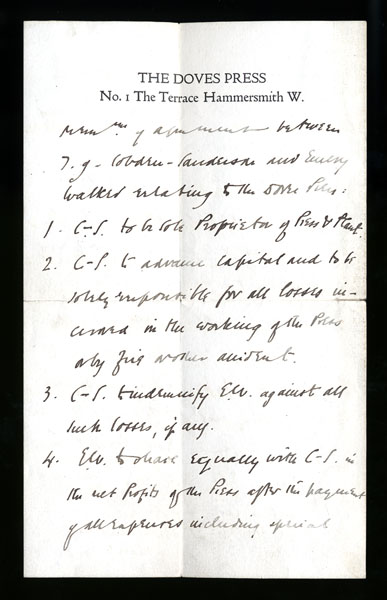 THE DOVES PRESS
No. 1 The Terrace Hammersmith W.
Memm of agreement between
T. J. Cobden-Sanderson and Emery
Walker relating to the Doves Press:
1. C-S. to be sole Proprietor of Press & Plant.
2. C-S. to advance capital and to be
solely responsible for all losses in-
curred in the working of the Press
or by fire or other accident.
3. C-S. to indemnify E.W. against all
such losses, if any.
4. E.W. to share equally with C-S. in
the net Profits of the Press after the payment
of all expenses including special